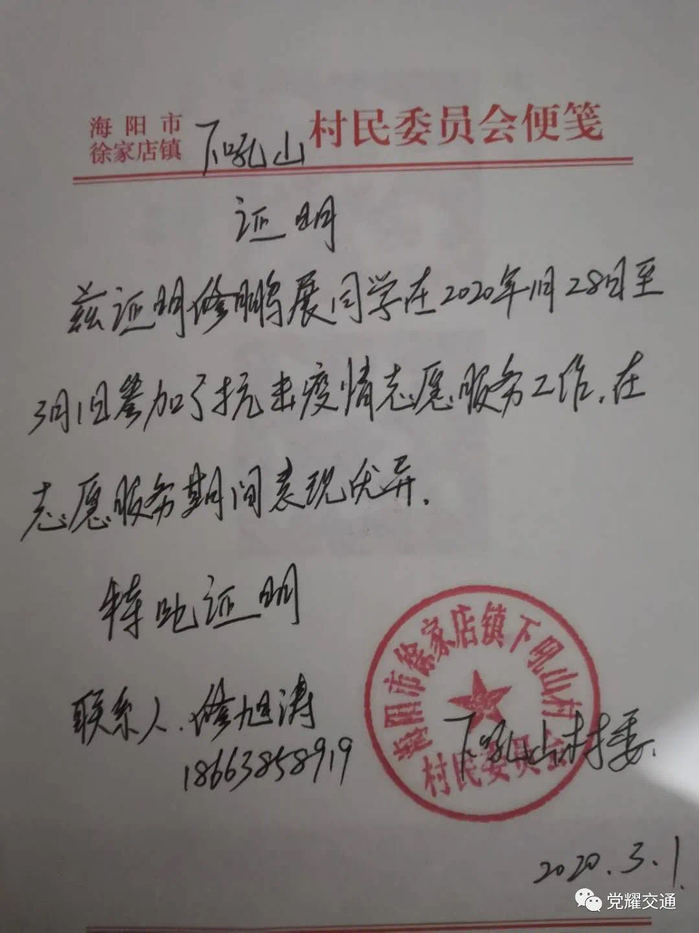 海阳市
徐家店镇 下吼山 村民委员会便笺
证明
兹证明修鹏展同学在2020年1月28日至
3月1日参加了抗击疫情志愿服务工作,在
志愿服务期间表现优异.
特此证明
联系人.修旭涛
18663858919
海阳市徐家店镇下吼山村
村民委员会
下吼山村委.
2020.3.1
党耀交通